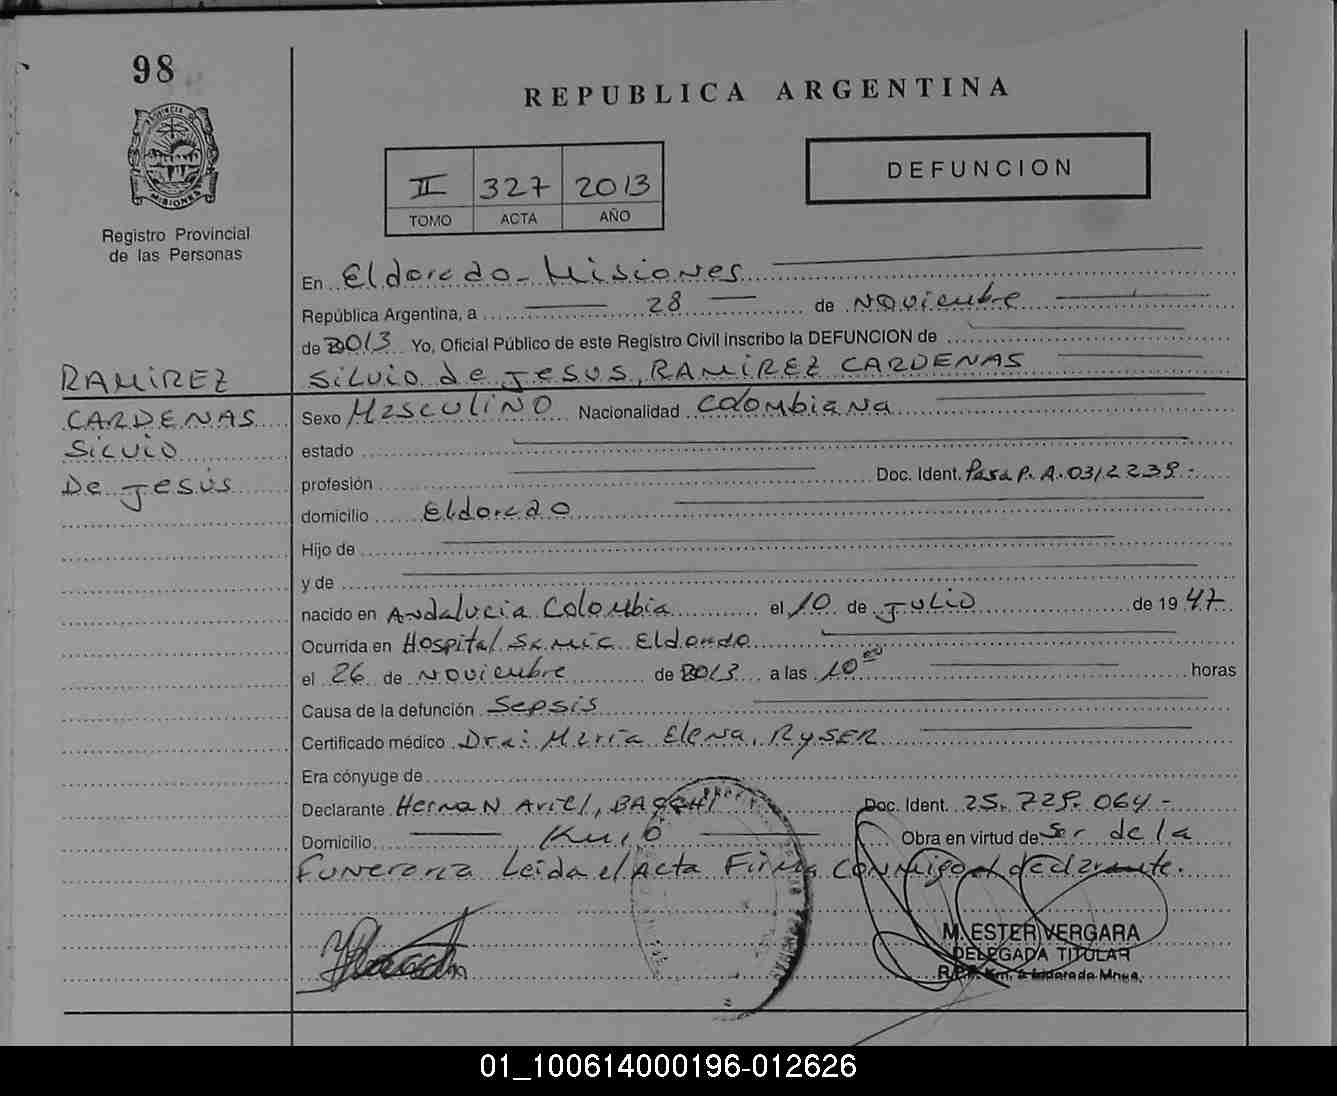 98
REPUBLICA ARGENTINA
PROVINCIA DE
MISIONES
Registro Provincial
de las Personas
II 327 2013
TOMO ACTA AÑO
DEFUNCION
En Eldorado - Misiones
República Argentina, a 28 de Noviembre
de 2013 Yo, Oficial Público de este Registro Civil inscribo la DEFUNCION de
Silvio de Jesus, RAMIREZ CARDENAS
RAMIREZ
CARDENAS
Silvio
De Jesús
Sexo Masculino Nacionalidad Colombiana
estado
profesión Doc. Ident. Pasap. A.0312239.-
domicilio Eldorado
Hijo de
y de
nacido en Andalucia Colombia el 10 de Julio de 1947
Ocurrida en Hospital Samic Eldorado
el 26 de Noviembre de 2013 a las 10 00 horas
Causa de la defunción Sepsis
Certificado médico Dra: Maria Elena, RYSER
Era cónyuge de
Declarante Hernan Ariel, Doc. Ident. 25.729.064-
Domicilio Km, Obra en virtud de Ser de la
Funeraria Leida el Acta Firma conmigo el declarante.
M. ESTER VERGARA
DELEGADA TITULAR
01_100614000196-012626